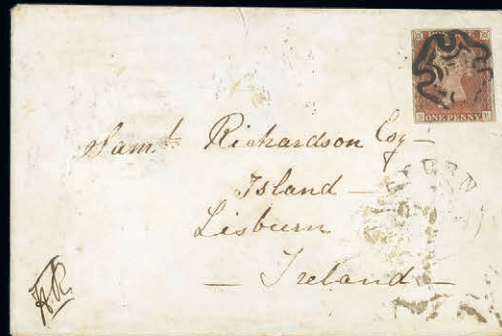 ONE PENNY
Saml. Richardson Esq
Island
Lisburn
Ireland